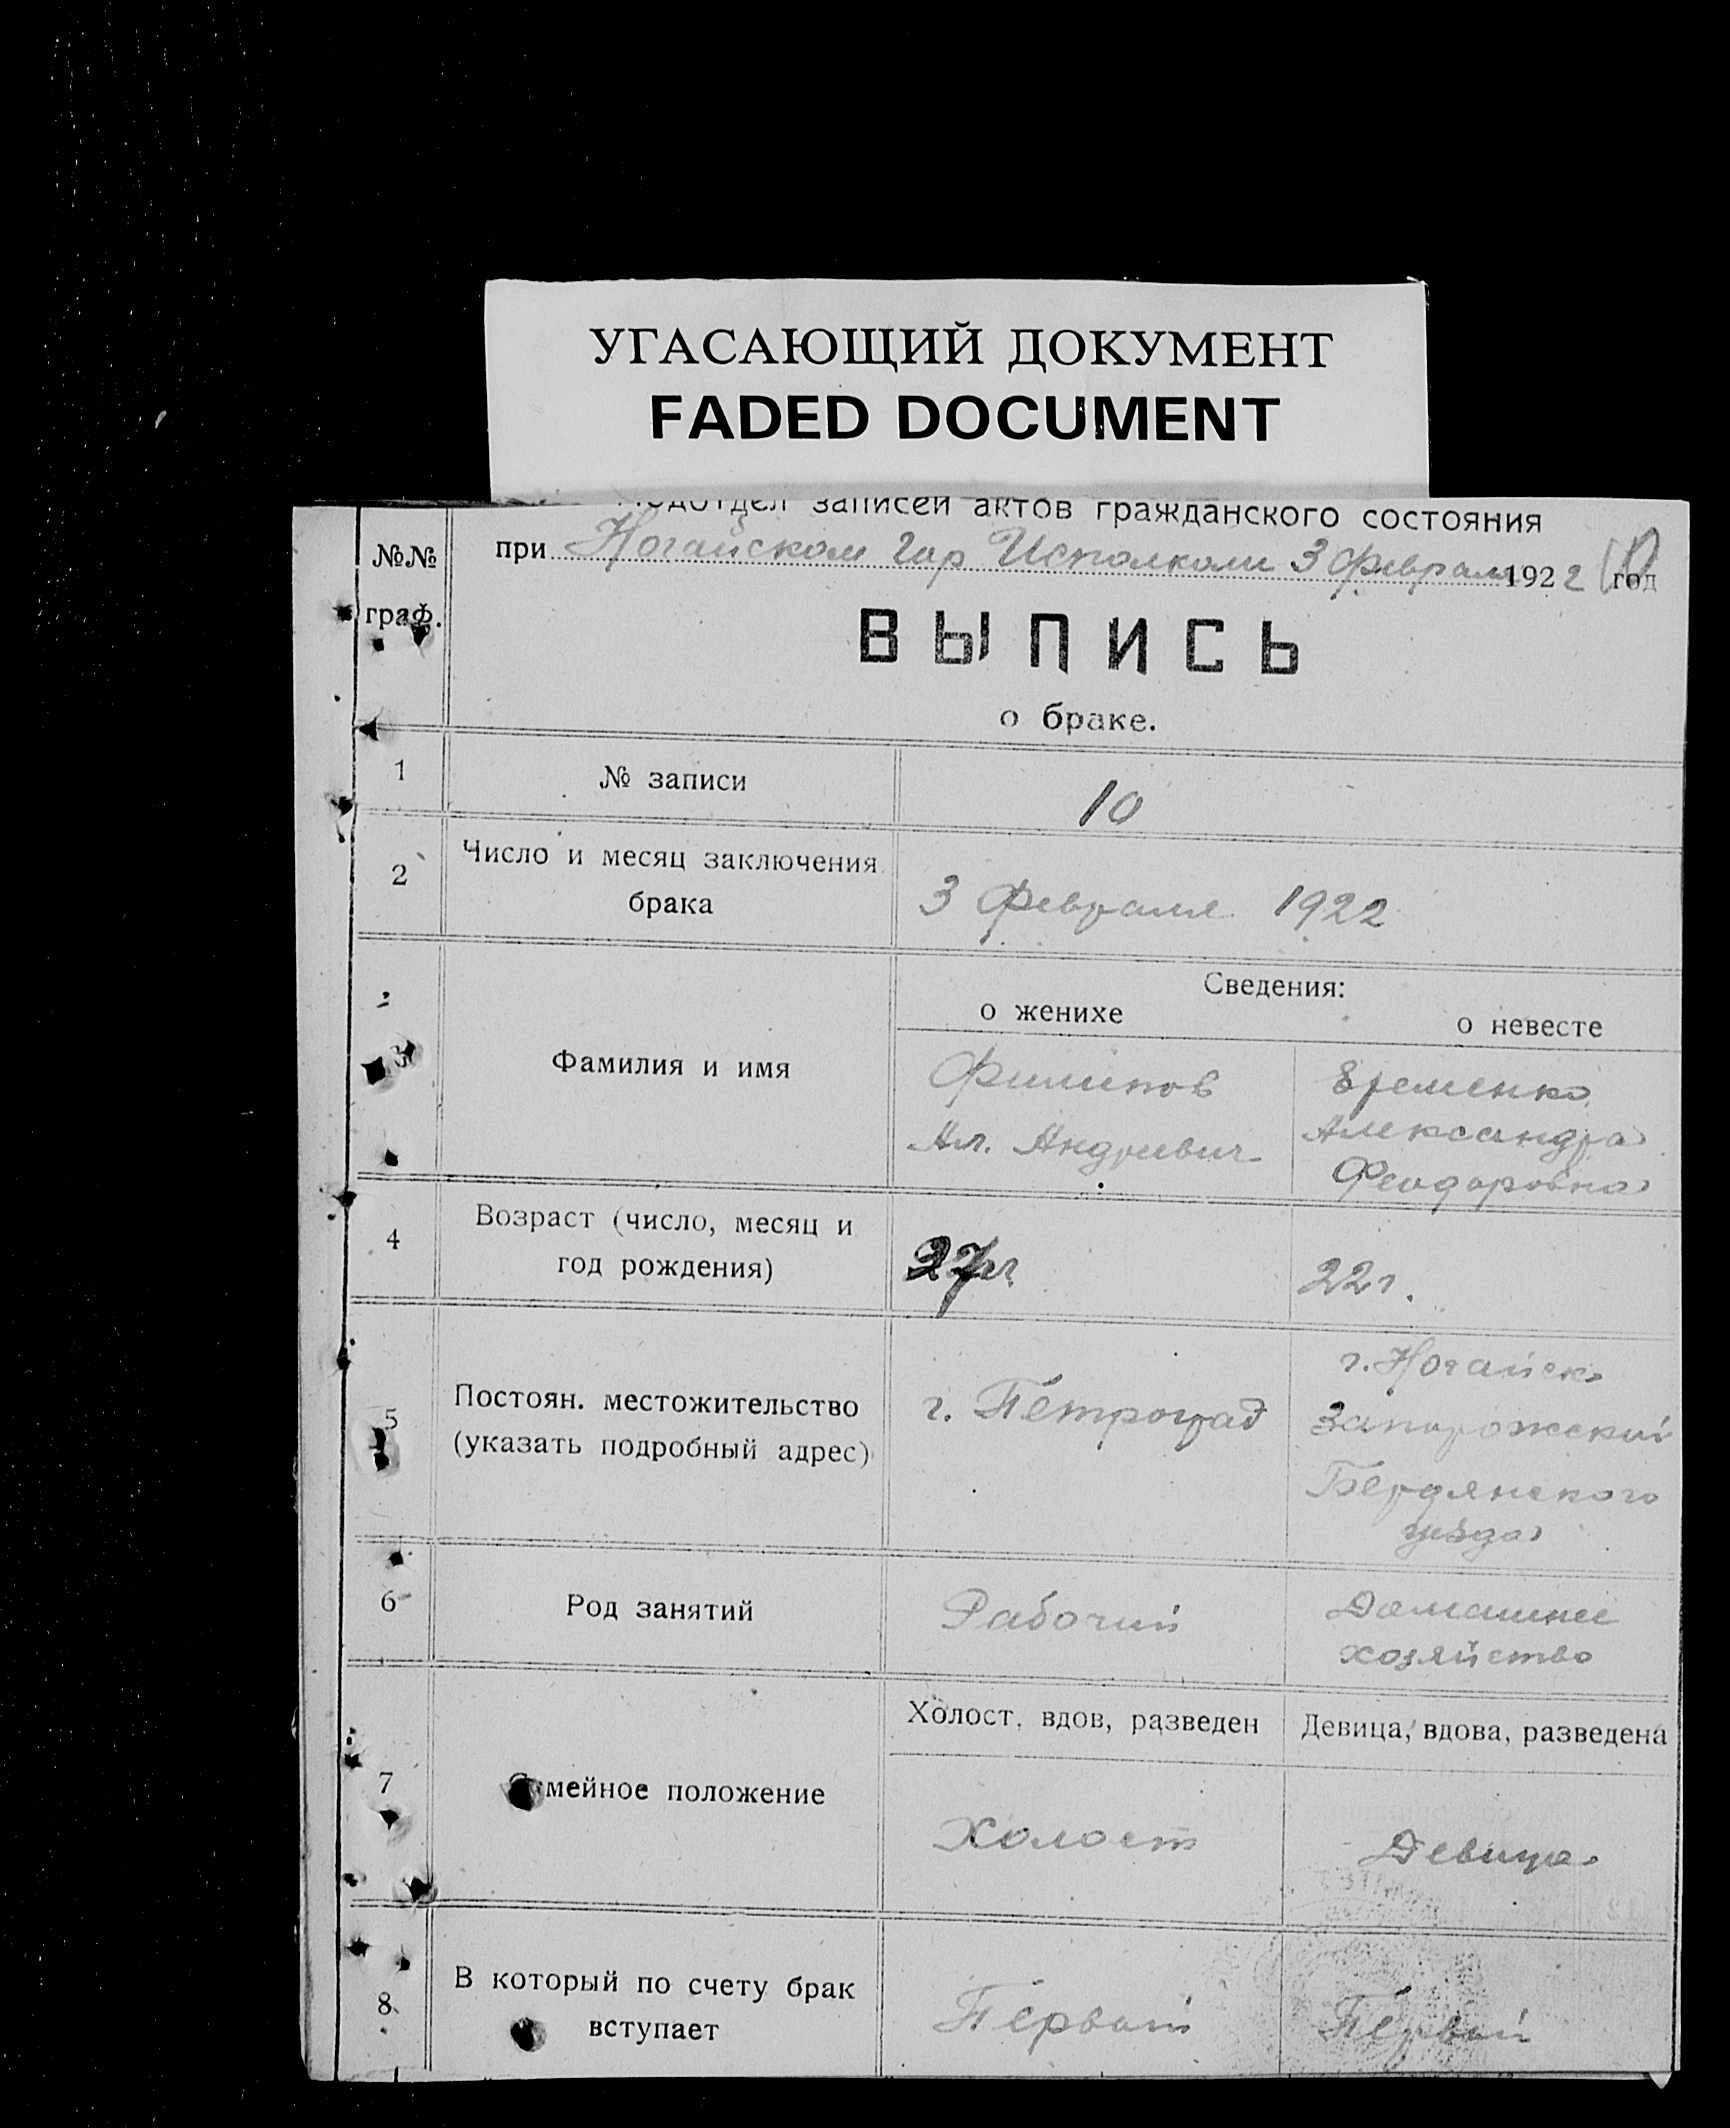 УГАСАЮЩИЙ ДОКУМЕНТ
FADED DOCUMENT
Подотдел записей актов гражданского состояния
№№ граф.
при Ногайском Гор Исполком 3 Февраля 1922 год
ВЫПИСЬ
о браке.
1 № записи 10
2 Число и месяц заключения
брака 3 Февраля 1922
Сведения:
о женихе о невесте
3 Фамилия и имя
Филипов Еременко
Ал. Андреевич Александра
Феодоровна
4 Возраст (число, месяц и
год рождения) 27 г. 22 г.
5 Постоян. местожительство
(указать подробный адрес)
г. Петроград г. Ногайск
Запорожской
Бердянского
уезда
6 Род занятий Рабочий Домашнее
хозяйство
Холост, вдов, разведен Девица, вдова, разведена
7 Семейное положение Холост Девица
8 В который по счету брак
вступает Первый Первый